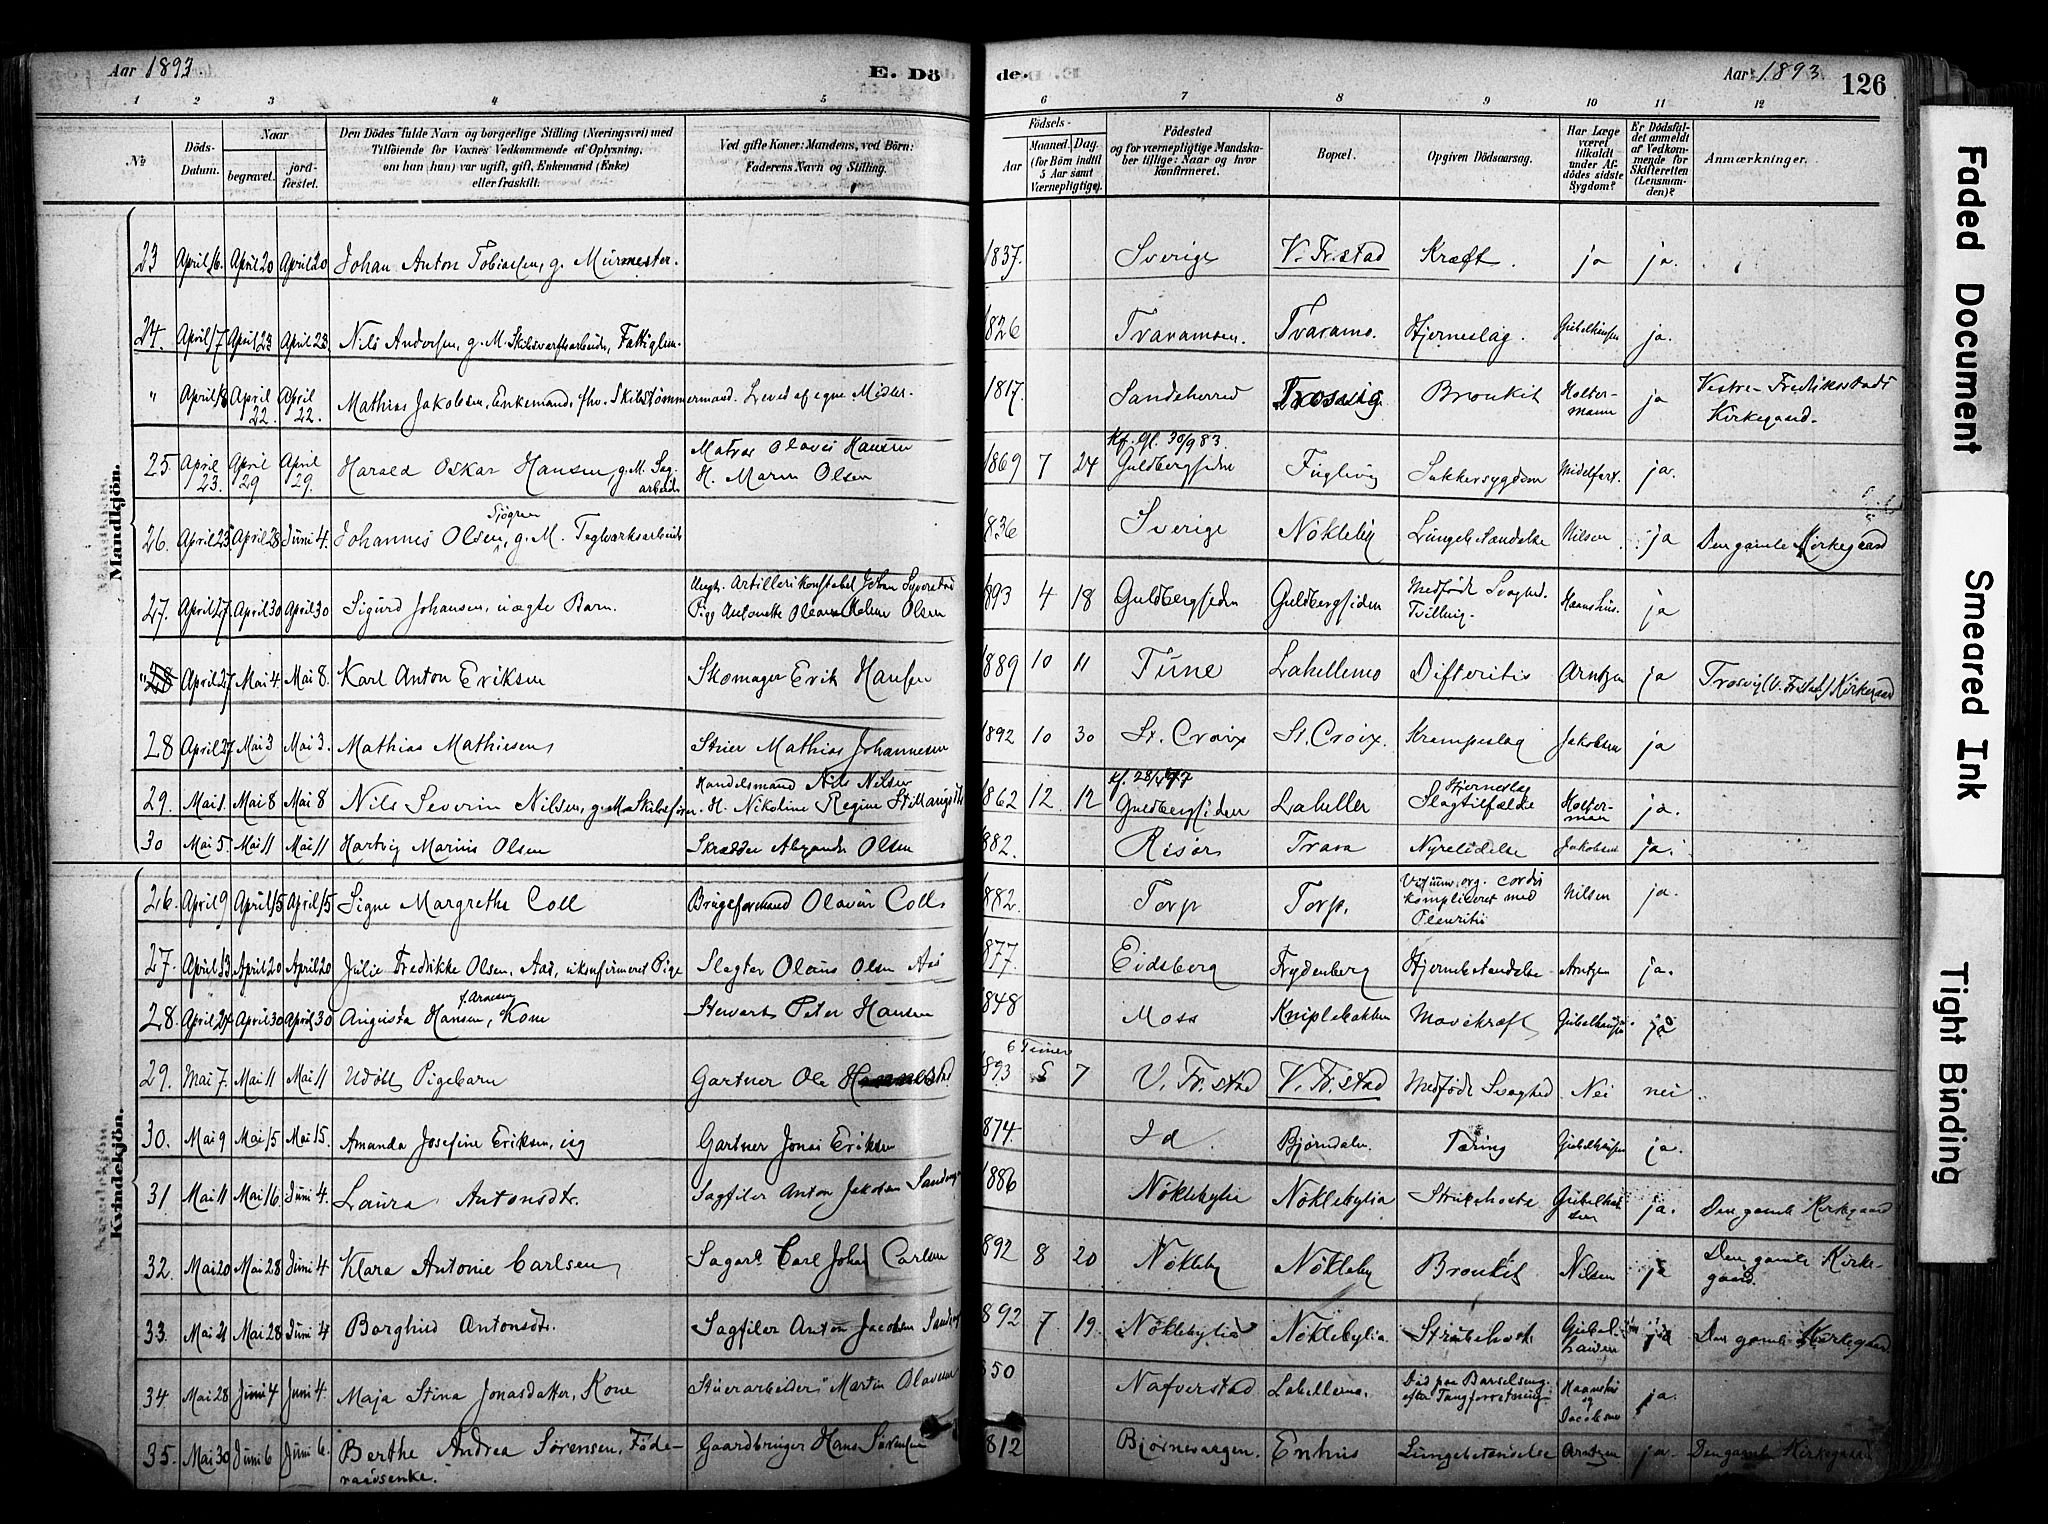 Aar 1893 E. Dö de. Aar 1893 126
1 2 3 4 5 6 7 8 9 10 11 12
№ Döds-Datum. Naar begravet. jordfæstet. Den Dödes fulde Navn og borgerlige Stilling (Næringsvei) med Tilföiende for Voxnes Vedkommende af Oplysning, om han (hun) var ugift, gift, Enkemand (Enke) eller fraskilt. Ved gifte Koner: Mandens, ved Börn: Faderens Navn og Stilling. Födsels-Aar Maaned. Dag. (for Börn indtil 5 Aar samt Værnepligtige). Födested og for værnepligtige Mandskaber tillige: Naar og hvor konfirmeret. Bopæl. Opgiven Dödsaarsag. Har Læge været tilkaldt under Afdödes sidste Sygdom? Er Dödsfaldet anmeldt af Vedkommende for Skifteretten (Lensmanden)? Anmærkninger.
Mandkjön.
23 April 16. April 20 April 20 Johan Anton Tobiassen, g. Murmester. 1837. Sverige V. Fr.stad Kræft. ja ja.
24. April 17 April 23 April 23. Nils Andersen, g. M. Skibsværftsarbeider, Fattiglem. 1826 Travamsen. Travamo. Hjerneslag. Gübelhausen ja.
" April 18 April 22 April 22. Mathias Jakobsen, Enkemand, fhv. Skibstømmermand. Leved af egne Midler. 1817. Sandeherred Trosvig Bronkit Holtermann ja Vestre Fredriksstads Kirkegaard.
25 April 23. April 29 April 29. Harald Oskar Hansen, g. M. Sagarbeider Matros Olaves Hansen H. Maren Olsen 1869 7 24 Kf. Gl. 30/9 83. Guldbergsiden Fuglevig Sukkersygdom Midelfart. ja.
26. April 25 April 28 Juni 4. Johannes Olsen Sjögren, g. M. Teglværksarbeider 1836 Sverige Nökleby Lungebetændelse Nilsen ja Den gamle Kirkegaard
27. April 27. April 30 April 30 Sigurd Johansen, uægte Barn. Ungk. Artillerikonstabel Johan Syverstad Pige Antonette Oleane Holm Olsen 1893 4 18 Guldbergsiden Guldbergsiden Medfödt Svaghed. Tvilling. Haanshus. ja
" April 27 Mai 4. Mai 8. Karl Anton Eriksen Skomager Erik Hansen 1889 10 11 Tune Lahellemo Difteritis Arntzen ja Trosvig (V. Fr.stad) Kirkegaard
28 April 27 Mai 3 Mai 3. Mathias Mathiesen Stuer Mathias Johannesen 1892 10 30 St. Croix St. Croix. Krampeslag Jakobsen ja
29. Mai 1. Mai 8 Mai 8 Nils Severin Nilsen, g. M. Skibsfører. Handelsmand Nils Nilsen H. Nikoline Regine 1862 12 12 Guldbergsiden Lahellen Hjerneslag Slagtilfælde Holtermann ja.
30 Mai 5. Mai 11 Mai 11 Hartvig Marius Olsen Skrædder Alexander Olsen 1882. Risör Trara Nyrelidelse Jakobsen ja.
Kvindekjön.
26. April 9 April 15 April 15. Signe Margrethe Coll Brugsformand Olavus Coll 1882. Torp Torp. Vitium org. cordis kompliceret med Pleuritis Nilsen ja.
27. April 13 April 20 April 20 Julie Fredrikke Olsen, Aas, ukonfirmeret Pige Slagter Olaus Olsen Aas 1877. Eidsberg Frydenberg Hjernebetændelse Arntzen ja.
28. April 24 April 30 April 30 Augusta Hansen, f. Arnesen Kone Stewert Peter Hansen 1848 Moss Kniplebakken Mavekræft Gübelhausen ja
29. Mai 7. Mai 11 Mai 11 Udöbt Pigebarn Gartner Ole 6 Timer 1893 5 7 V. Fr.stad V. Fr.stad Medfödt Svaghed Nei nei
30. Mai 9 Mai 15 Mai 15. Amanda Josefine Eriksen, ug Gartner Jonas Eriksen 1874. Id. Bjørndalen Tæring Gübelhausen ja.
31 Mai 11. Mai 16. Juni 4. Laura Antonsdtr. Sagfiler Anton Jakobsen Sandvig 1886 Nöklebylia Nöklebylia Strubehoste Gübelhausen ja. Den gamle Kirkegaard
32. Mai 20 Mai 28 Juni 4 Klara Antonie Carlsen Sagarb. Carl Johan Carlsen 1892 8 20 Nökleby Nökleby Bronkit Nilsen ja Den gamle Kirkegaard.
33. Mai 21 Mai 28 Juni 4 Borghild Antonsdtr. Sagfiler Anton Jacobsen Sandvig 1892 7 19. Nöklebylia Nöklebylia Strubehoste Gübelhausen ja Den gamle Kirkegaard.
34. Mai 28 Juni 4 Juni 4. Maja Stina Jonasdatter, Kone Stuerarbeider Martin Olavesen 1850 Nafverstad Lahellemo. Död paa Barselseng efter Tangforretning Haanshus og Jacobsen ja.
35. Mai 30 Juni 6 Juni 6. Berthe Andrea Sørensen, Föderaadsenke. Gaardbruger Hans Sørensen 1812 Bjørnevaagen. Enhus Lungebetændelse Arntzen ja. Den gamle Kirkegaard
Faded Document
Smeared Ink
Tight Binding